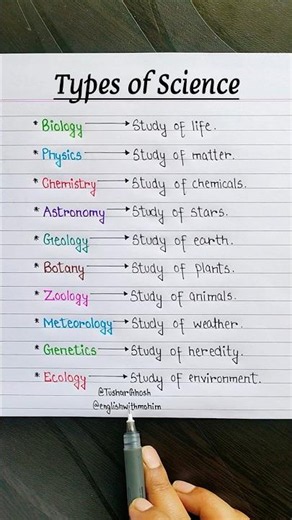 Types of Science
* Biology → Study of life.
* Physics → Study of matter.
* Chemistry → Study of chemicals.
* Astronomy → Study of stars.
* Geology → Study of earth.
* Botany → Study of plants.
* Zoology → Study of animals.
* Meteorology → Study of weather.
* Genetics → Study of heredity.
* Ecology → Study of environment.
@TusharGhosh
@englishwithmohim